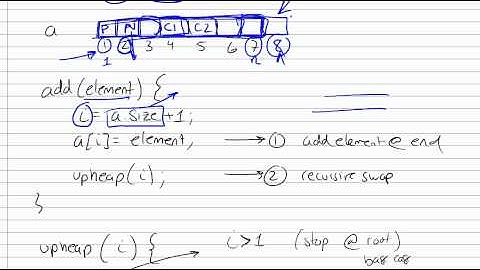 a P N C1 C2
1 2 3 4 5 6 7 8
1
add(element) {
i = a.size + 1;
a[i] = element, → ① add element @ end
upheap(i); → ② recursive swap
}
upheap(i) { i>1 (stop @ root)